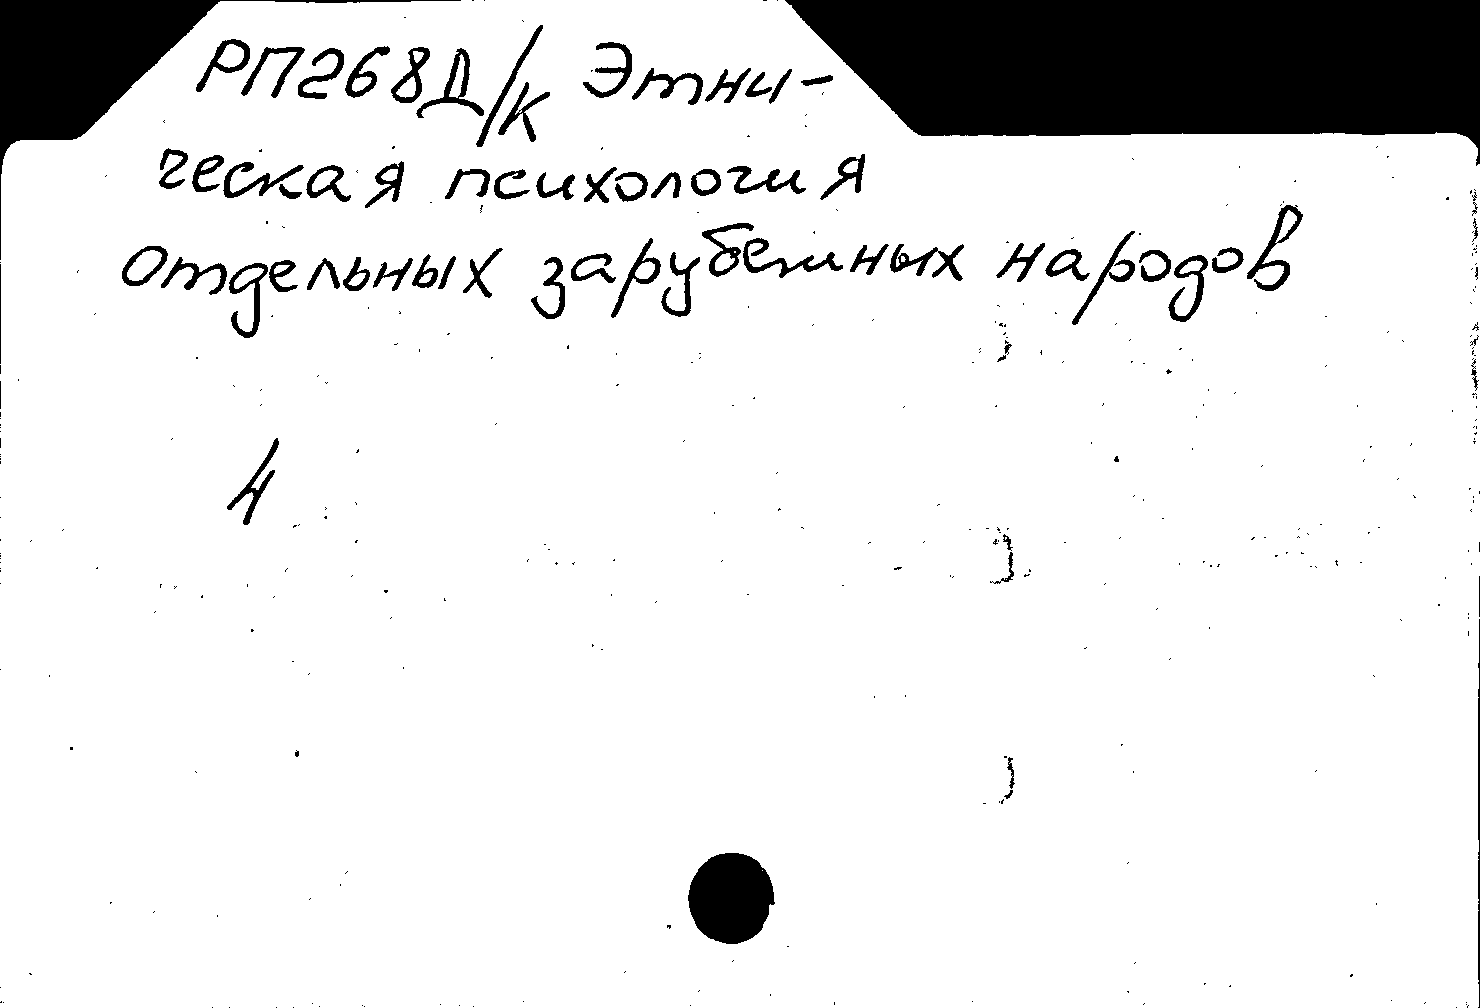 РП268Д/К Этни-
ческая психология
отдельных зарубежных народов
4